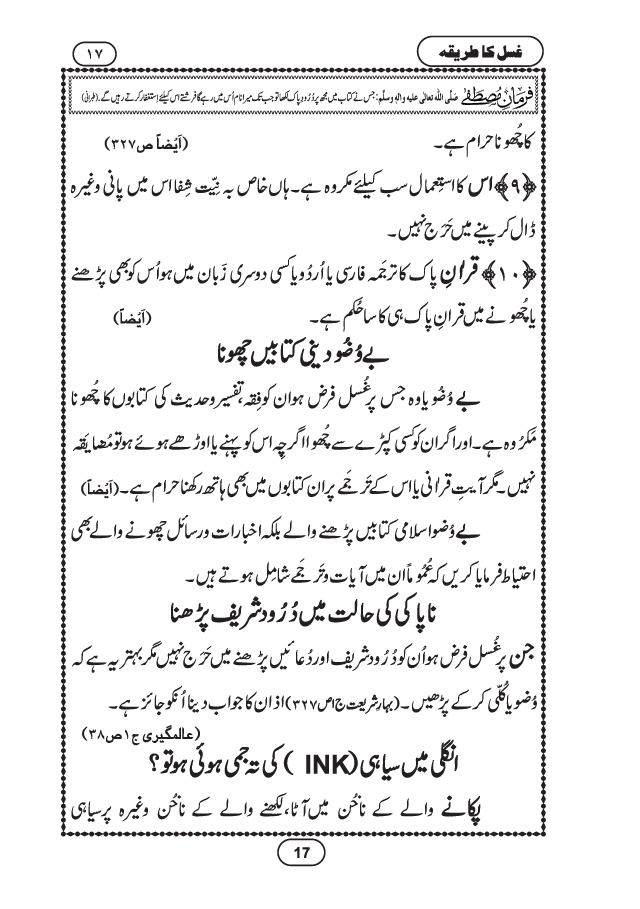 غسل کا طریقہ
۱۷
فرمانِ مصطَفٰے صلَّی اللہ تعالٰی علیہ واٰلہٖ وسلَّم: جس نے کتاب میں مجھ پر دُرُودِ پاک لکھا تو جب تک میرا نام اُس میں رہے گا فرشتے اس کیلئے اِستغفار کرتے رہیں گے۔ (طبرانی)
کا چُھونا حرام ہے۔ (اَیْضاً ص۳۲۷)
﴿۹﴾ اس کا استِعمال سب کیلئے مکروہ ہے۔ ہاں خاص بہ نیّتِ شِفا اس میں پانی وغیرہ
ڈال کر پینے میں حَرَج نہیں۔
﴿۱۰﴾ قراٰنِ پاک کا ترجَمہ فارسی یا اُردُو یا کسی دوسری زَبان میں ہو اُس کو بھی پڑھنے
یا چُھونے میں قراٰنِ پاک ہی کا سا حُکم ہے۔ (اَیْضاً)
بے وُضُو دینی کتابیں چھونا
بے وُضُو یا وہ جس پر غُسل فرض ہو ان کو فِقہ، تفسیر و حدیث کی کتابوں کا چُھونا
مَکرُوہ ہے۔ اور اگر ان کو کسی کپڑے سے چُھوا اگرچِہ اس کو پہنے یا اوڑھے ہوئے ہو تو مُضایَقہ
نہیں۔ مگر آیتِ قراٰنی یا اس کے تَرجَمے پر ان کتابوں میں بھی ہاتھ رکھنا حرام ہے۔ (اَیْضاً)
بے وُضو اسلامی کتابیں پڑھنے والے بلکہ اخبارات و رسائل چھونے والے بھی
احتیاط فرمایا کریں کہ عُمُوماً ان میں آیات و تَرجَمے شامِل ہوتے ہیں۔
ناپاکی کی حالت میں دُرُود شریف پڑھنا
جن پر غُسل فرض ہو اُن کو دُرُود شریف اور دُعائیں پڑھنے میں حَرَج نہیں مگر بہتر یہ ہے کہ
وُضو یا کُلّی کر کے پڑھیں۔ (بہارِ شریعت ج۱ص۳۲۷) اذان کا جواب دینا اُنکو جائز ہے۔
(عالمگیری ج۱ص۳۸)
انگلی میں سیاہی (INK) کی تہ جمی ہوئی ہو تو؟
پکانے والے کے ناخُن میں آٹا، لکھنے والے کے ناخُن وغیرہ پر سیاہی
17